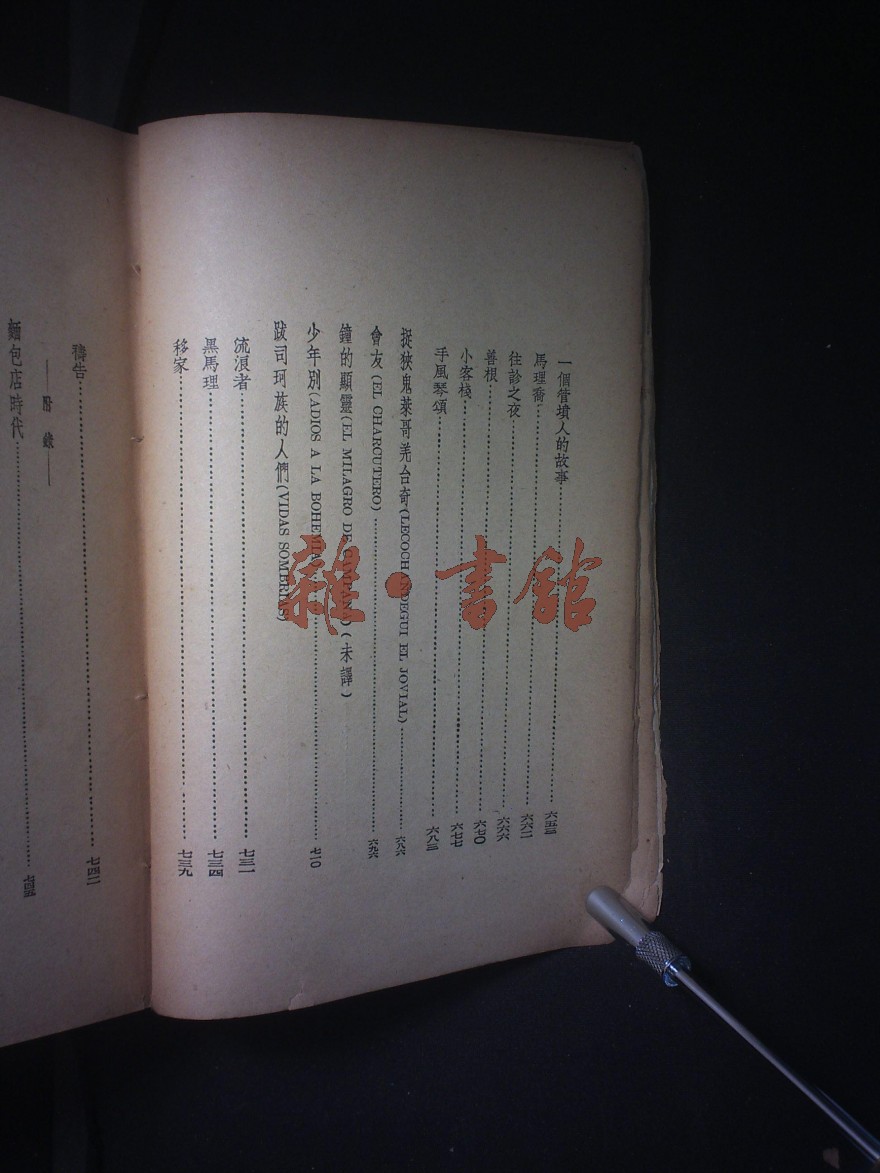 一個管墳人的故事……六五三
馬理喬……六六二
往診之夜……六六六
善根……六七〇
小客棧……六七七
手風琴頌……六八三
捉狹鬼萊哥羌台奇(LECOCHANDEGUI EL JOVIAL)……六八六
會友(EL CHARCUTERO)……六九六
鐘的顯靈(EL MILAGRO DE CAMPANA)(未譯)
少年別(ADIOS A LA BOHEMIA)……七一〇
跋司珂族的人們(VIDAS SOMBRIAS)
流浪者……七三一
黑馬理……七三四
移家……七三九
禱告……七四二
——附錄——
麵包店時代……
雜·書館